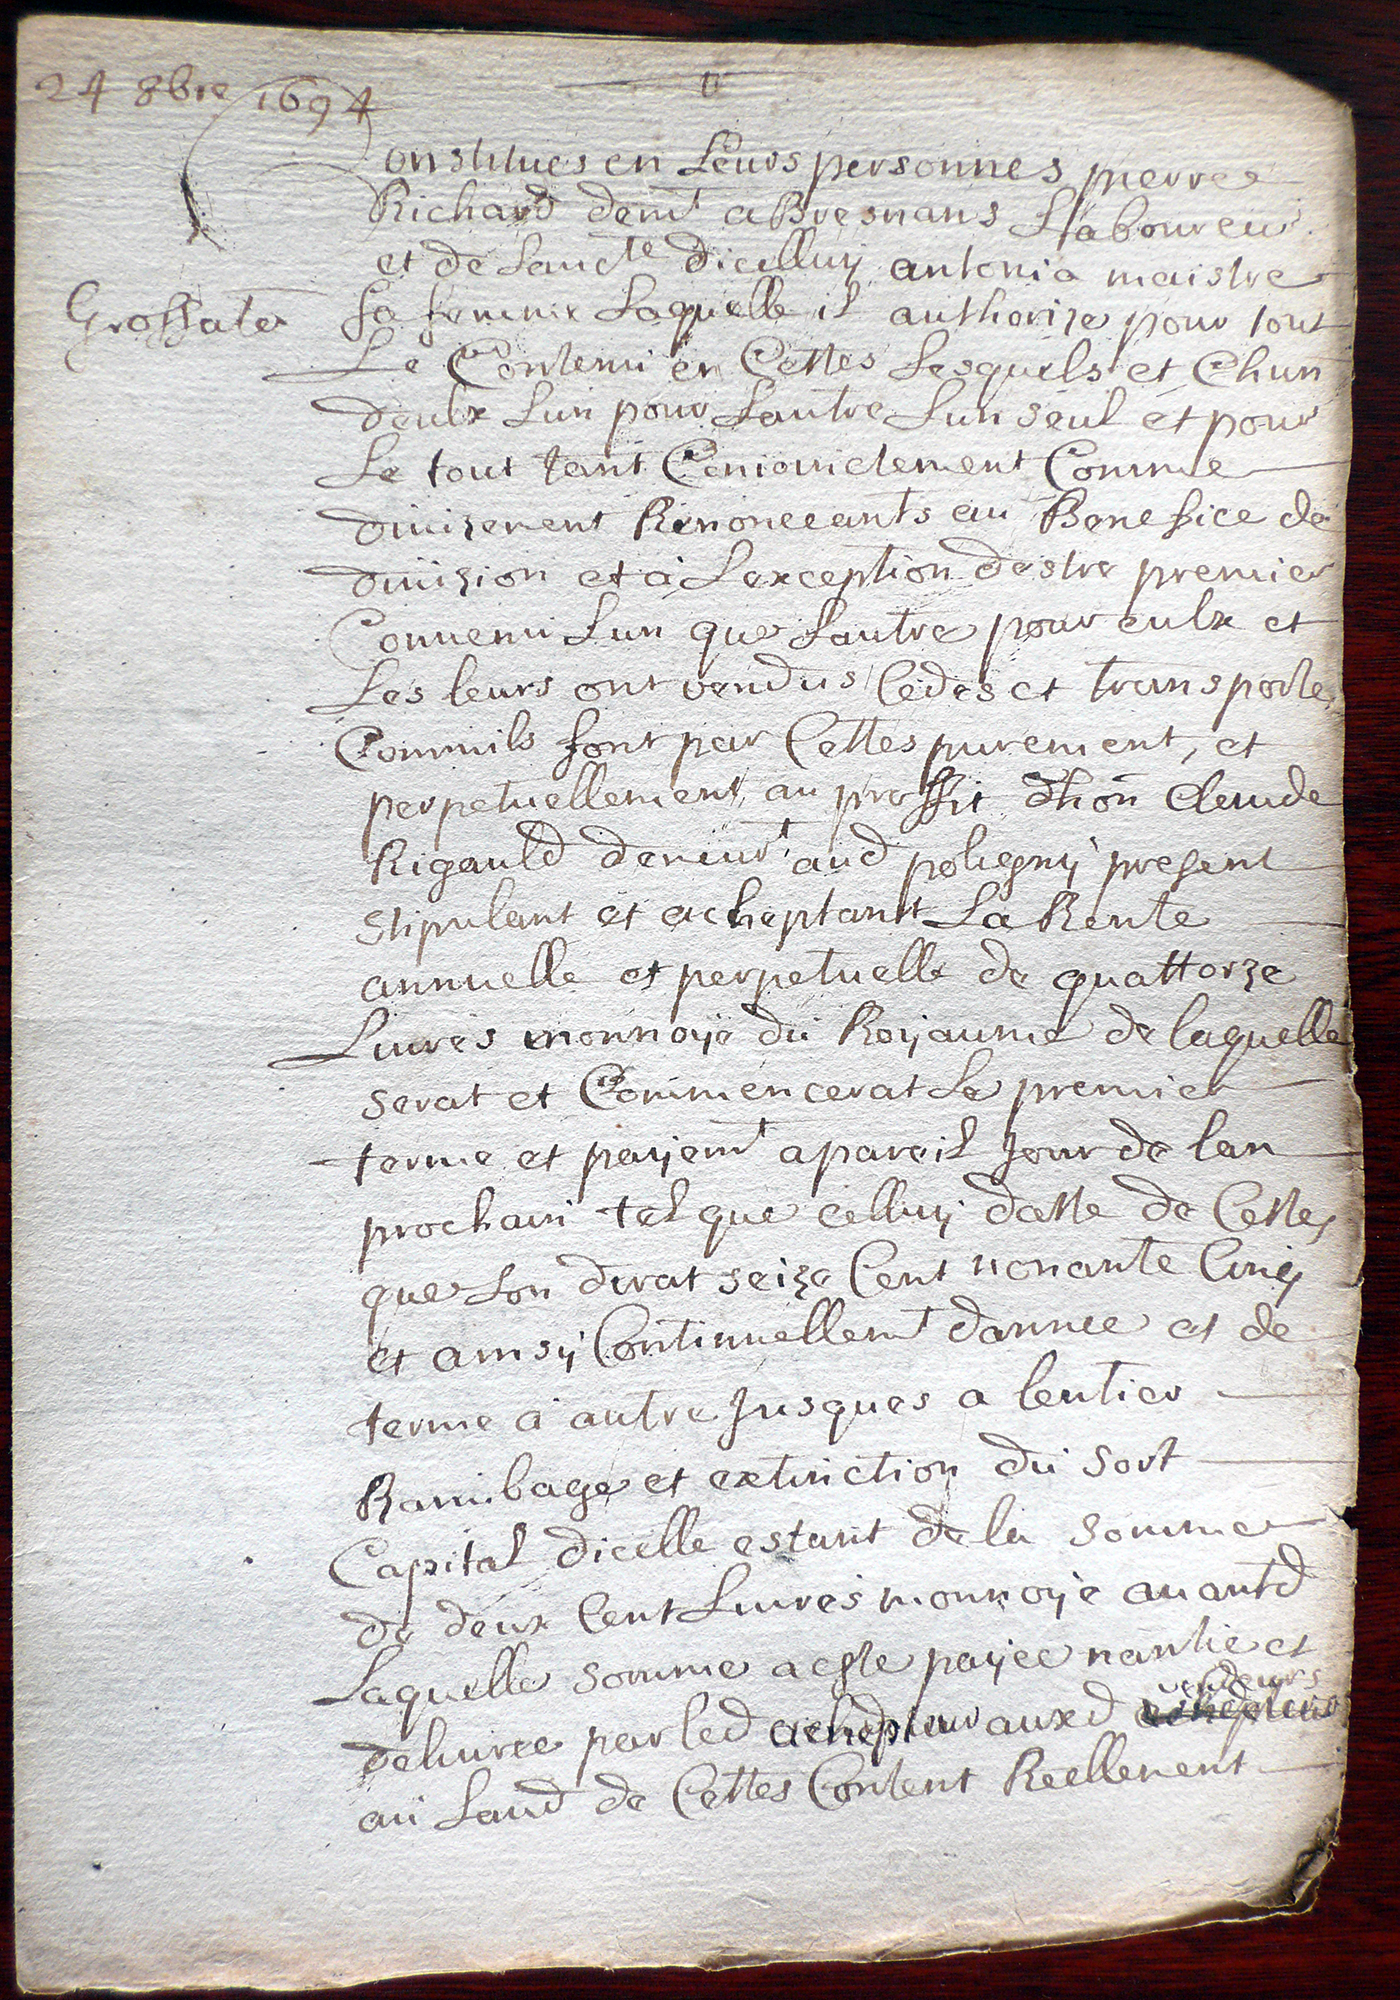 24 8bre 1694
Constitues en Leurs personnes pierre
Richard demt a Bresnans Laboureur
et de Laucte dicelluy antonia maistre
Grossate
sa femme Laquelle il authorize pour tout
Le Contenu en Cettes Lesquels et Chun
deulx Lun pour Lautre Lun seul et pour
Le tout tant Conioinctement Comme
diuizement Renonceants au Benefice de
diuizion et à Lexception destre premier
Conuenu Lun que Lautre pour eulx et
Les leurs ont vendus Cedes et transporte
Commils font par Cettes purement, et
perpetuellement au proffit dhon Claude
Rigauld demeurt aud poligny present
stipulant et acheptant La Rente
annuelle et perpetuelle de quattorze
Liures monnoye du Royaume de laquelle
serat et Commencerat Le premier
terme et payemt a pareil Jour de lan
prochain tel que celluy datte de Cettes
que Lon dirat seize Cent nonante Cinq
et ainsy Continuellemt dannee et de
terme à autre Jusques a lentier
Raimbage et extinction du sort
Capital dicelle estant de la somme
de deux Cent Liures monnoye auantd
Laquelle somme a este payee nantie et
vendeurs
deliuree par led achepteur auxd achepteurs
au Laud de Cettes Content Reellement